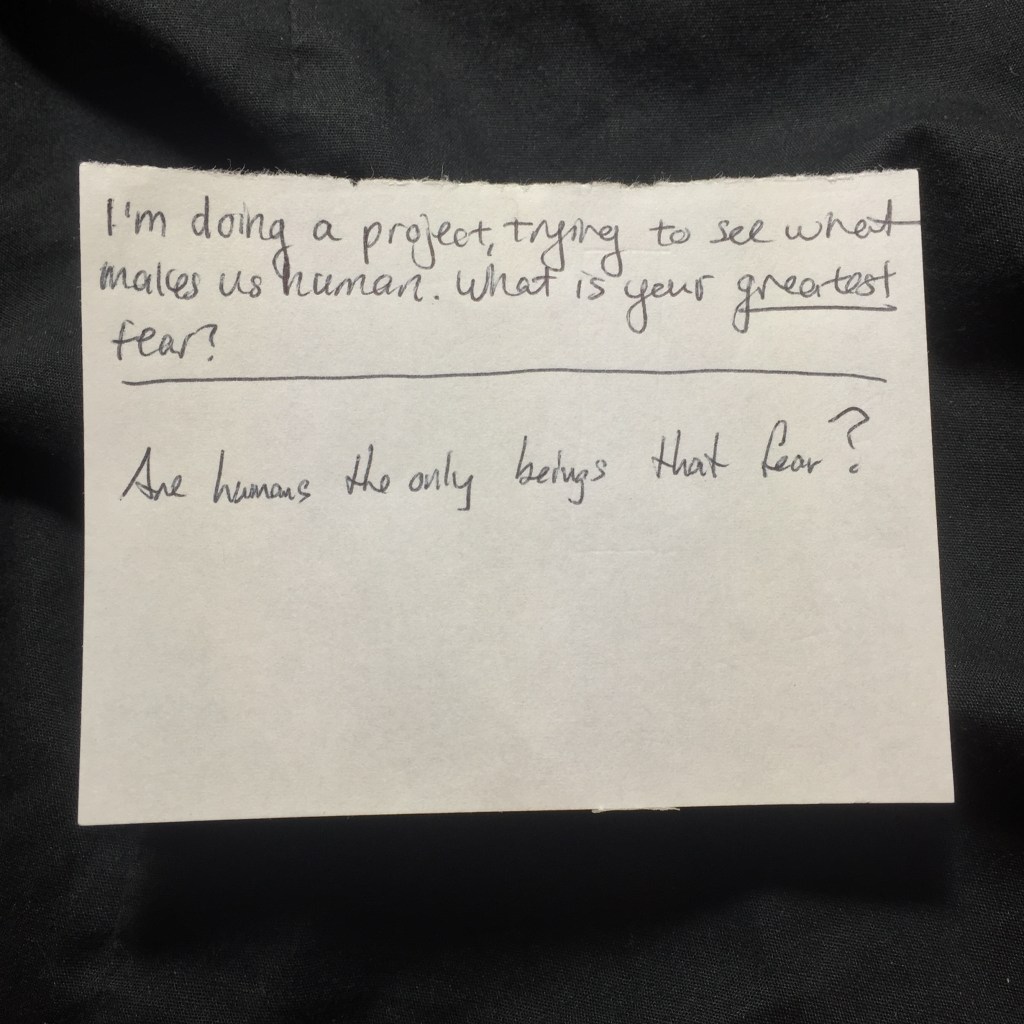 I'm doing a project, trying to see what
makes us human. What is your greatest
fear?
Are humans the only beings that fear?